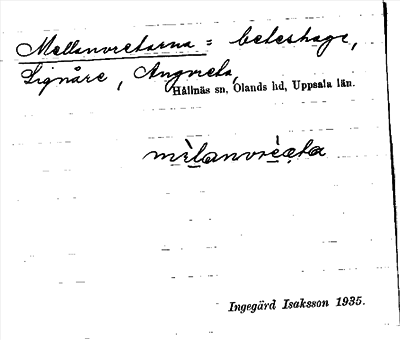 Mellanvretarna = beteshage,
Lignåre, Angvreta,
Hållnäs sn, Ölands hd, Uppsala län.
mèlanvréata
Ingegärd Isaksson 1935.